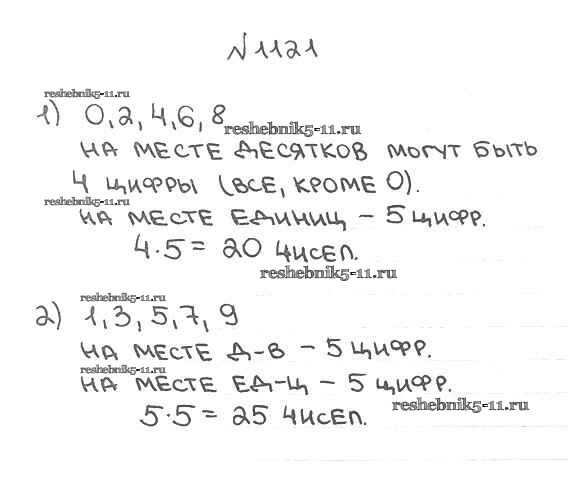 №1121
reshebnik5-11.ru
1) 0, 2, 4, 6, 8
reshebnik5-11.ru
НА МЕСТЕ ДЕСЯТКОВ МОГУТ БЫТЬ
4 ЦИФРЫ (ВСЕ, КРОМЕ 0).
reshebnik5-11.ru
НА МЕСТЕ ЕДИНИЦ – 5 ЦИФР.
4·5 = 20 ЧИСЕЛ.
reshebnik5-11.ru
reshebnik5-11.ru
2) 1, 3, 5, 7, 9
НА МЕСТЕ Д-В – 5 ЦИФР.
reshebnik5-11.ru
НА МЕСТЕ ЕД-Ц – 5 ЦИФР.
reshebnik5-11.ru
5·5 = 25 ЧИСЕЛ.